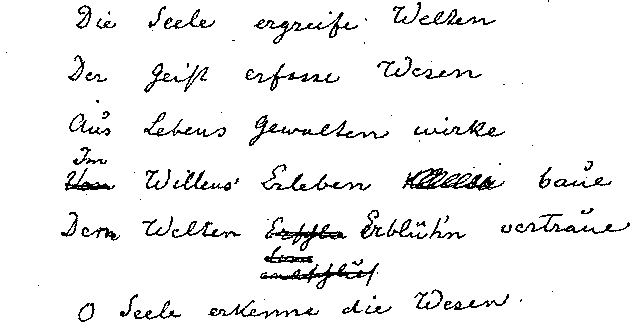 Die Seele ergreife Welten
Der Geist erfasse Wesen
Aus Lebens Gewalten wirke
Im
Willens Erleben baue
Dem Welten Erblüh'n vertraue
O Seele erkenne die Wesen.